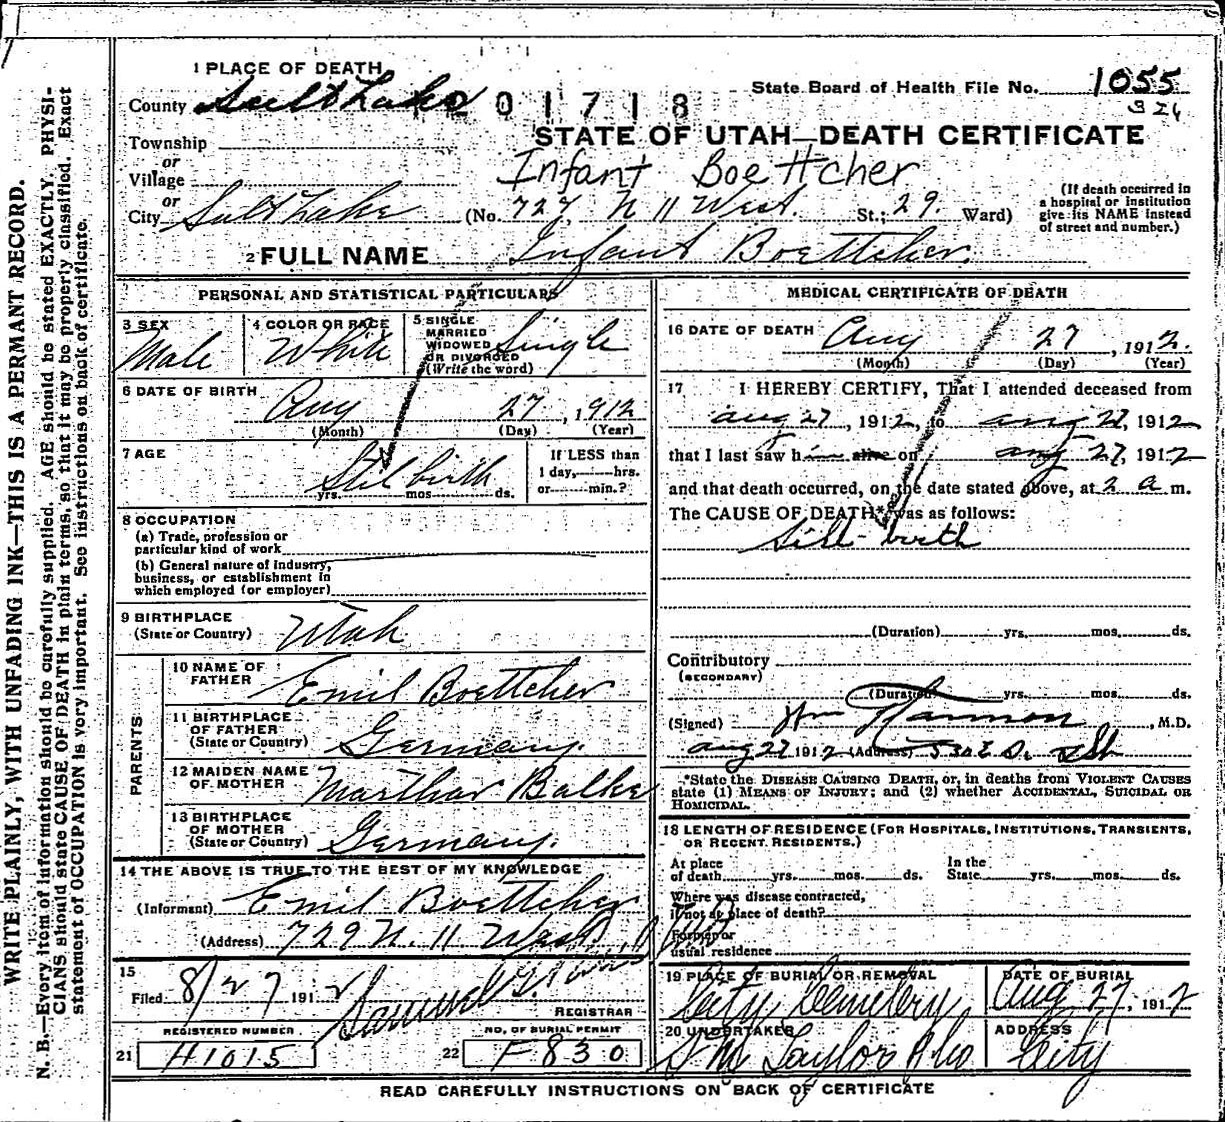 WRITE PLAINLY, WITH UNFADING INK—THIS IS A PERMANT RECORD.
N. B.—Every item of information should be carefully supplied. AGE should be stated EXACTLY. PHYSI-
CIANS should state CAUSE OF DEATH in plain terms, so that it may be properly classified. Exact
statement of OCCUPATION is very important. See instructions on back of certificate.
1 PLACE OF DEATH
County Salt Lake
201718
State Board of Health File No. 1055
326
STATE OF UTAH—DEATH CERTIFICATE
Township
or
Village
Infant Boettcher
or
City Salt Lake (No. 727, N 11 West. St.; 29. Ward)
(If death occurred in
a hospital or institution
give its NAME instead
of street and number.)
2 FULL NAME Infant Boettcher.
PERSONAL AND STATISTICAL PARTICULARS
3 SEX
Male
4 COLOR OR RACE
White
5 SINGLE
MARRIED
WIDOWED
OR DIVORCED
(Write the word)
Single
6 DATE OF BIRTH
Aug 27, 1912
(Month) (Day) (Year)
7 AGE
Stilbirth
yrs. mos. ds.
If LESS than
1 day, hrs.
or min.?
8 OCCUPATION
(a) Trade, profession or
particular kind of work
(b) General nature of industry,
business, or establishment in
which employed (or employer)
9 BIRTHPLACE
(State or Country)
Utah
PARENTS
10 NAME OF
FATHER
Emil Boettcher
11 BIRTHPLACE
OF FATHER
(State or Country)
Germany.
12 MAIDEN NAME
OF MOTHER
Marthar Balke
13 BIRTHPLACE
OF MOTHER
(State or Country)
Germany.
14 THE ABOVE IS TRUE TO THE BEST OF MY KNOWLEDGE
(Informant) Emil Boettcher
(Address) 729 N. 11 West
15
Filed 8/27 1912
REGISTRAR
REGISTERED NUMBER
21 H1015
NO. OF BURIAL PERMIT
22 F830
MEDICAL CERTIFICATE OF DEATH
16 DATE OF DEATH
Aug 27, 1912.
(Month) (Day) (Year)
17 I HEREBY CERTIFY, That I attended deceased from
aug 27, 1912, to aug 27, 1912
that I last saw him alive on aug 27, 1912
and that death occurred, on the date stated above, at 2 a m.
The CAUSE OF DEATH* was as follows:
Still-birth
(Duration) yrs. mos. ds.
Contributory
(SECONDARY)
(Duration) yrs. mos. ds.
(Signed) Wm , M.D.
aug 27 1912 (Address) 530 E So.
*State the DISEASE CAUSING DEATH, or, in deaths from VIOLENT CAUSES
state (1) MEANS OF INJURY; and (2) whether ACCIDENTAL, SUICIDAL OR
HOMICIDAL.
18 LENGTH OF RESIDENCE (FOR HOSPITALS, INSTITUTIONS, TRANSIENTS,
OR RECENT RESIDENTS.)
At place
of death yrs. mos. ds.
In the
State yrs. mos. ds.
Where was disease contracted,
if not at place of death?
Former or
usual residence
19 PLACE OF BURIAL OR REMOVAL
City Cemetery
DATE OF BURIAL
Aug 27, 1912
20 UNDERTAKER
S M Taylor & Co
ADDRESS
City
READ CAREFULLY INSTRUCTIONS ON BACK OF CERTIFICATE